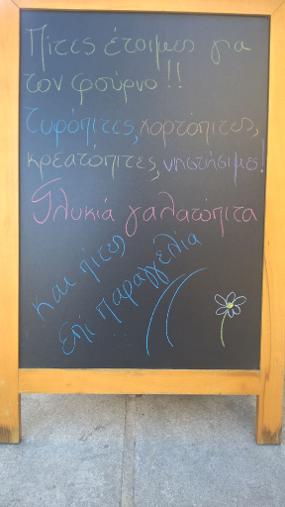 Πίτες έτοιμες για
τον φούρνο!!
Τυρόπιτες, χορτόπιτες,
κρεατόπιτες, νηστήσιμες!
Γλυκιά γαλατόπιτα
και πίτες
Επί παραγγελία